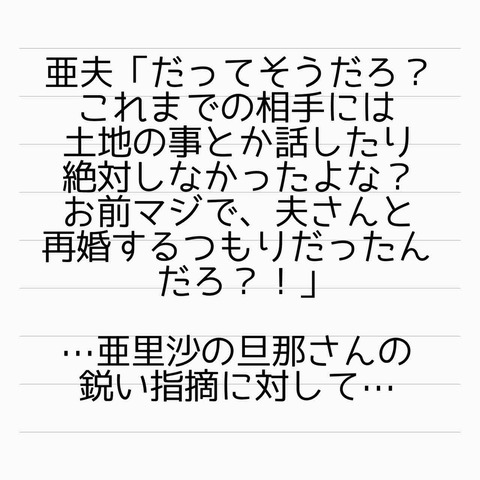 亜夫「だってそうだろ？
これまでの相手には
土地の事とか話したり
絶対しなかったよな？
お前マジで、夫さんと
再婚するつもりだったん
だろ？！」
…亜里沙の旦那さんの
鋭い指摘に対して…